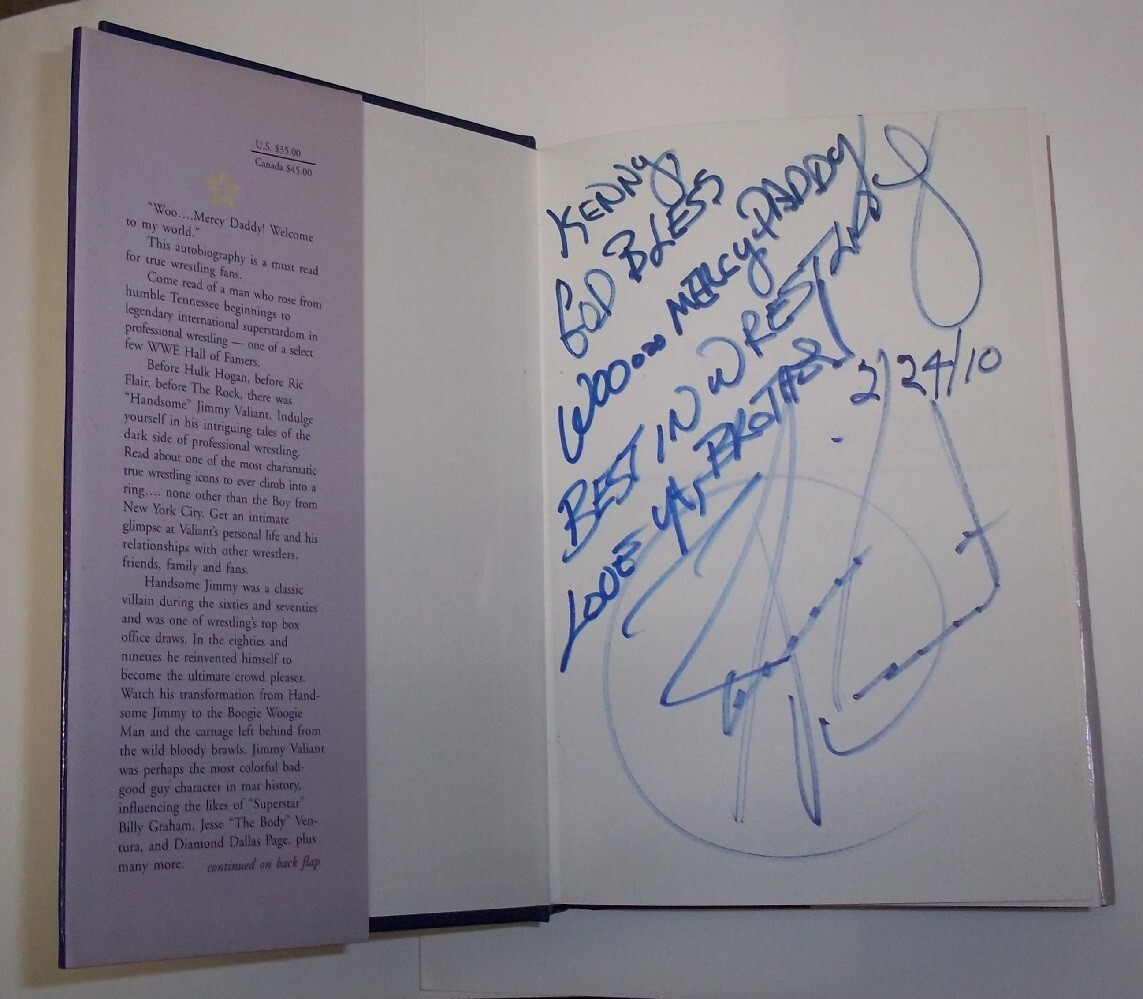 U.S. $35.00
Canada $45.00
"Woo....Mercy Daddy! Welcome
to my world."
This autobiography is a must read
for true wrestling fans.
Come read of a man who rose from
humble Tennessee beginnings to
legendary international superstardom in
professional wrestling — one of a select
few WWE Hall of Famers.
Before Hulk Hogan, before Ric
Flair, before The Rock, there was
"Handsome" Jimmy Valiant. Indulge
yourself in his intriguing tales of the
dark side of professional wrestling.
Read about one of the most charismatic
true wrestling icons to ever climb into a
ring.... none other than the Boy from
New York City. Get an intimate
glimpse at Valiant's personal life and his
relationships with other wrestlers,
friends, family and fans.
Handsome Jimmy was a classic
villain during the sixties and seventies
and was one of wrestling's top box
office draws. In the eighties and
nineties he reinvented himself to
become the ultimate crowd pleaser.
Watch his transformation from Hand-
some Jimmy to the Boogie Woogie
Man and the carnage left behind from
the wild bloody brawls. Jimmy Valiant
was perhaps the most colorful bad-
good guy character in mat history,
influencing the likes of "Superstar"
Billy Graham, Jesse "The Body" Ven-
tura, and Diamond Dallas Page, plus
many more. continued on back flap
KENNY,
GOD BLESS
WOOooo MERCY DADDY
BEST IN WRESTLING
LOVE YA, BROTHER
2/24/10